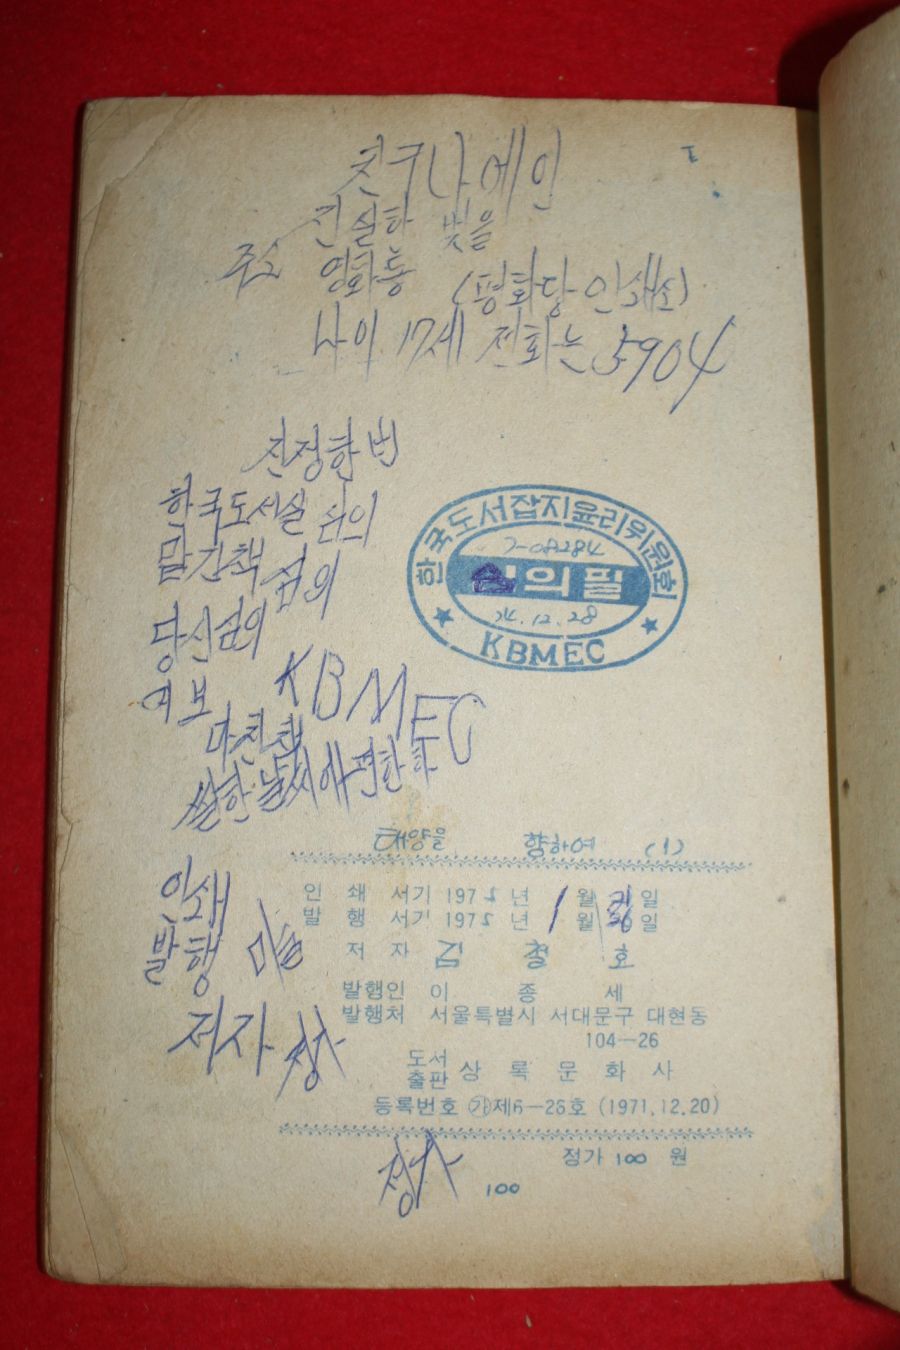 친구나에인
진실하 빛을
주소 영화통 (평화당 인쇄소)
나이 17세 전화는 5904
진정한 번
한국도서실 심의
맡긴책 심의
당신심의
여보 KBMEC
마친책
쌀한 날씨에 편한하
한국도서잡지윤리위원회
7-08284
심의필
74.12.28
KBMEC
태양을 향하여 (1)
인쇄 서기 1975년 1월 일
발행 서기 1975년 1월 일
저자 김철호
발행인 이종세
발행처 서울특별시 서대문구 대현동
104-26
도서출판 상록문화사
등록번호 ㉮제6-26호 (1971.12.20)
정가 100 원
100
인쇄
발행
저자
정가